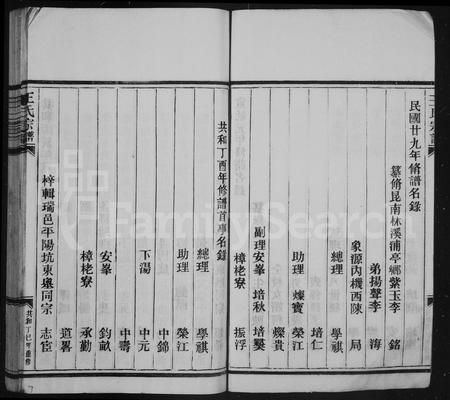 王氏宗譜
民國廿九年脩譜名錄
纂脩昆南林溪浦亭鄉紫玉李 銘
弟揚聲李 海
象源內機西陳 局
總理 學祺
培仁
助理 燦寶 榮江
燦貴
副理安峯 培秋 培璺
樟栳寮 振浮
共和丁酉年修譜首事名錄
總理 學祺
助理 榮江
中錦
下湯 中元
中壽
安峯 鈞畝
樟栳寮 承勤
道畧
梓輯瑞邑平陽坑東奧同宗 志宦
王氏宗譜
FamilySearch